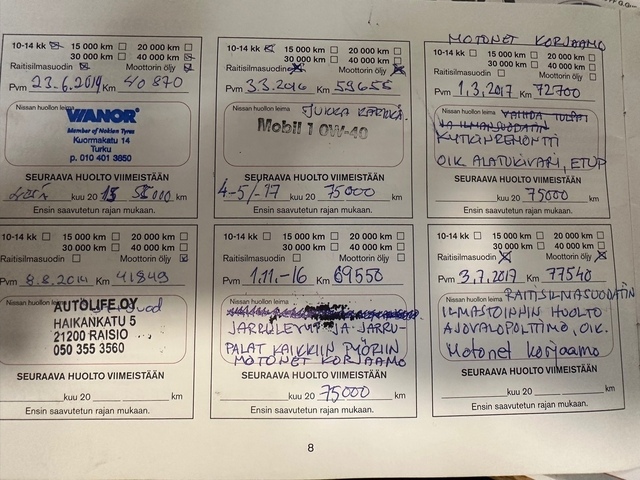 10-14 kk 15 000 km 20 000 km
30 000 km 40 000 km
Raitisilmasuodin Moottorin öljy
Pvm 23.6.2014 Km 40 870
Nissan huollon leima
VIANOR
Member of Nokian Tyres
Kuormakatu 14
Turku
p. 010 401 3650
SEURAAVA HUOLTO VIIMEISTÄÄN
kuu 20 15 55000 km
Ensin saavutetun rajan mukaan.
10-14 kk 15 000 km 20 000 km
30 000 km 40 000 km
Raitisilmasuodin Moottorin öljy
Pvm 3.3.2016 Km 59655
Nissan huollon leima JUKKA
Mobil 1 0W-40
SEURAAVA HUOLTO VIIMEISTÄÄN
4-5/-17 kuu 20 75000 km
Ensin saavutetun rajan mukaan.
MOTONET KORJAAMO
10-14 kk 15 000 km 20 000 km
30 000 km 40 000 km
Raitisilmasuodin Moottorin öljy
Pvm 1.3.2017 Km 72700
Nissan huollon leima VAIHDA TULPAT
JA ILMANSUODATIN
KYTKINREMONTTI
OIK. ALATUKIVARI, ETUP
SEURAAVA HUOLTO VIIMEISTÄÄN
kuu 20 75000 km
Ensin saavutetun rajan mukaan.
10-14 kk 15 000 km 20 000 km
30 000 km 40 000 km
Raitisilmasuodin Moottorin öljy
Pvm 8.8.2014 Km 41849
Nissan huollon leima
AUTOLIFE OY
HAIKANKATU 5
21200 RAISIO
050 355 3560
SEURAAVA HUOLTO VIIMEISTÄÄN
kuu 20 km
Ensin saavutetun rajan mukaan.
10-14 kk 15 000 km 20 000 km
30 000 km 40 000 km
Raitisilmasuodin Moottorin öljy
Pvm 1.11.-16 Km 69550
Nissan huollon leima
JARRULEVYT JA JARRU-
PALAT KAIKKIIN PYÖRIIN
MOTONET KORJAAMO
SEURAAVA HUOLTO VIIMEISTÄÄN
kuu 20 75000 km
Ensin saavutetun rajan mukaan.
10-14 kk 15 000 km 20 000 km
30 000 km 40 000 km
Raitisilmasuodin Moottorin öljy
Pvm 3.7.2017 Km 77540
Nissan huollon leima RAITISILMASUODATIN
ILMASTOINNIN HUOLTO
AJOVALOPOLTTIMO, OIK.
Motonet korjaamo
SEURAAVA HUOLTO VIIMEISTÄÄN
kuu 20 km
Ensin saavutetun rajan mukaan.
8